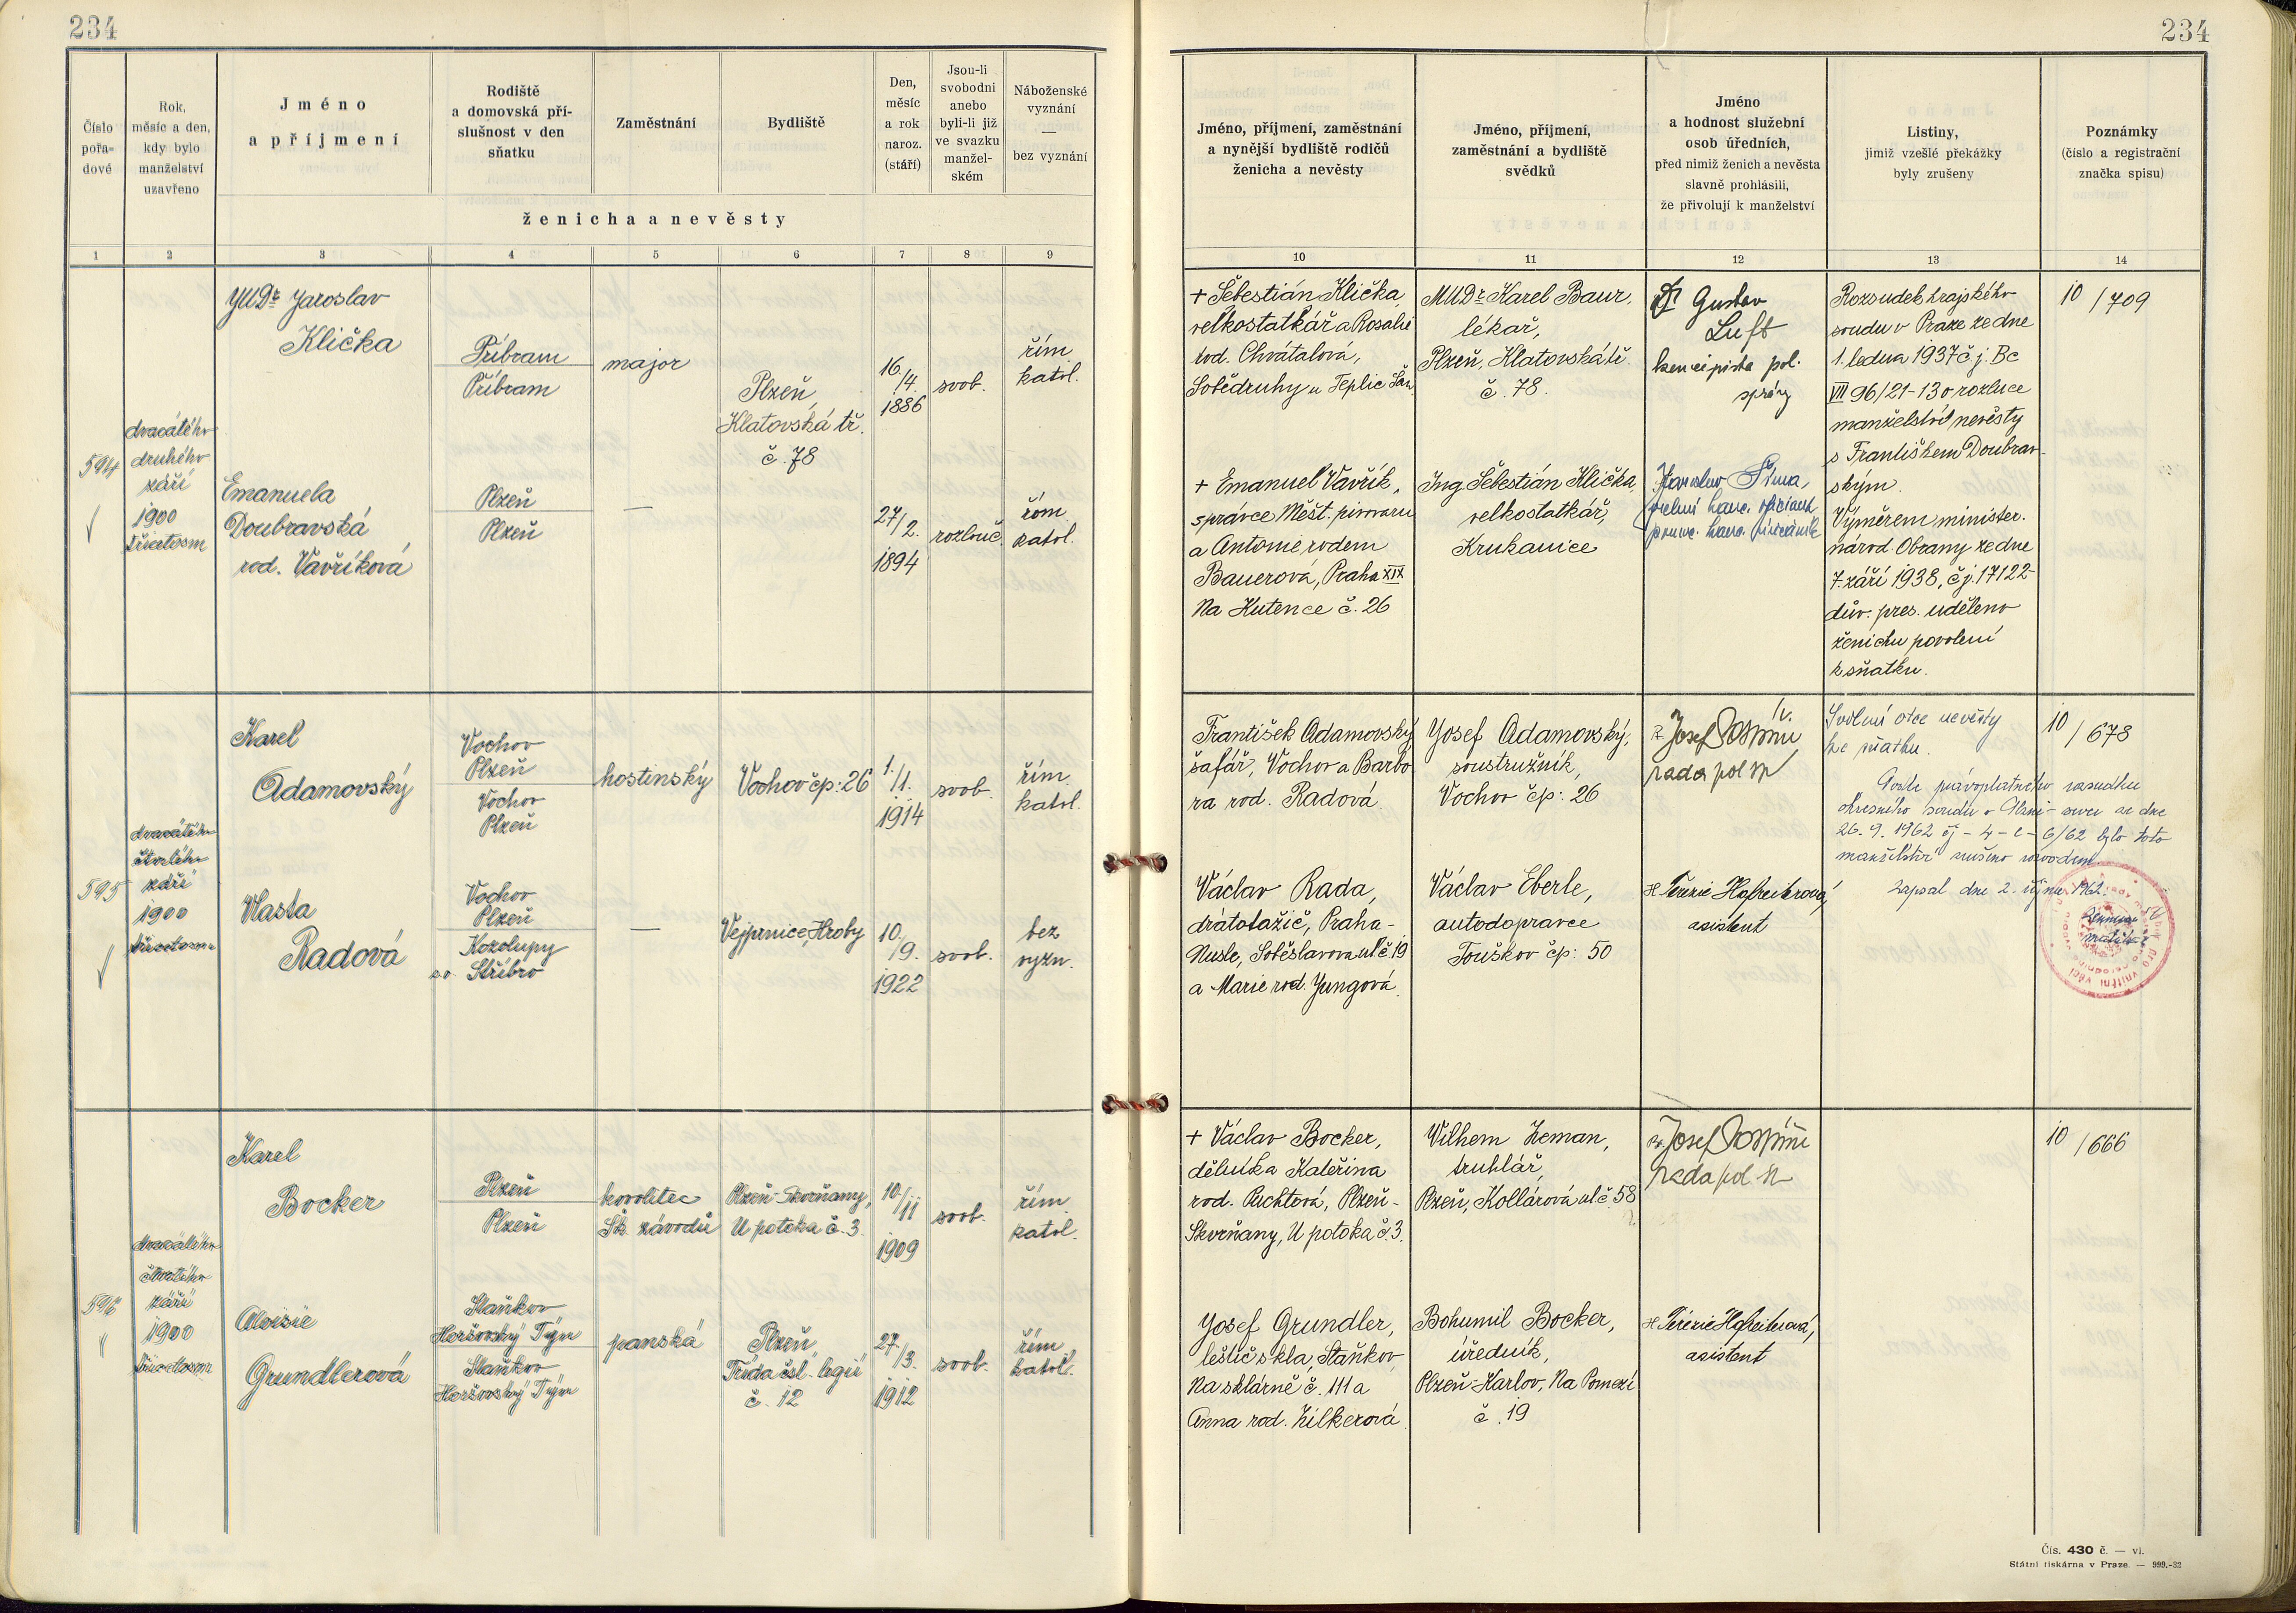 234
234
Číslo
pořa-
dové
Rok,
měsíc a den,
kdy bylo
manželství
uzavřeno
Jméno
a příjmení
Rodiště
a domovská pří-
slušnost v den
sňatku
Zaměstnání
Bydliště
Den,
měsíc
a rok
naroz.
(stáří)
Jsou-li
svobodni
anebo
byli-li již
ve svazku
manžel-
ském
Náboženské
vyznání
—
bez vyznání
ženicha a nevěsty
Jméno, příjmení, zaměstnání
a nynější bydliště rodičů
ženicha a nevěsty
Jméno, příjmení,
zaměstnání a bydliště
svědků
Jméno
a hodnost služební
osob úředních,
před nimiž ženich a nevěsta
slavně prohlásili,
že přivolují k manželství
Listiny,
jimiž vzešlé překážky
byly zrušeny
Poznámky
(číslo a registrační
značka spisu)
1 2 3 4 5 6 7 8 9
10 11 12 13 14
594
dvacátého
druhého
září
1900
třicetosm
JUDr Jaroslav
Klička
Příbram
Příbram
major
Plzeň,
Klatovská tř.
č. 78
16.
/4.
1886
svob.
řím.
katol.
Emanuela
Doubravská
rod. Vavříková
Plzeň
Plzeň
—
27/2.
1894
rozlouč.
řím.
katol.
+ Šebestián Klička,
velkostatkář a Rosalie
rod. Chvátalová,
Sobědruhy u Teplic Šan.
+ Emanuel Vavřík,
správce Měšť. pivovaru
a Antonie rodem
Bauerová, Praha XIX
Na Kutence č. 26
MUDr Karel Baur,
lékař,
Plzeň, Klatovská tř.
č. 78.
Ing Šebestián Klička,
velkostatkář,
Krukanice
Dr Gustav
Luft
koncipista pol.
správy
Jaroslav Šíma,
Rozsudek krajského
soudu v Praze ze dne
1. ledna 1937 č. j. Bc
VII 96/21-13 o rozluce
manželství nevěsty
s Františkem Doubrav-
ským.
Výměrem minister.
národ. Obrany ze dne
7. září 1938, č.j. 17122-
dův. pres. uděleno
ženichu povolení
k sňatku.
10/709
595
dvacátého
čtvrtého
září
1900
třicetosm
Karel
Adamovský
Vochov
Plzeň
Vochov
Plzeň
hostinský
Vochov čp: 26
1.
/1.
1914
svob.
řím.
katol.
Vlasta
Radová
Vochov
Plzeň
Kozolupy
s.o. Stříbro
—
Vejprnice, Hroby
10.
/9.
1922
svob.
bez
vyzn.
František Adamovský
šafář, Vochov a Barbo-
ra rod. Radová.
Václav Rada,
drátotažič, Praha-
Nusle, Soběslavova ul č. 19
a Marie rod. Jungová.
Josef Adamovský,
soustružník,
Vochov čp: 26
Václav Eberle,
autodopravce
Touškov čp: 50
Josef
rada pol
Terezie Hofreiterová,
asistent
Svolení otce nevěsty
ke sňatku.
Podle právoplatného rozsudku
okresního soudu v Plzni - sever ze dne
26. 9. 1962 čj - 4 - c - 6/62 bylo toto
manželství zrušeno rozvodem.
Zapsal dne 2. října 1962.
10/678
596
dvacátého
čtvrtého
září
1900
třicetosm
Karel
Bocker
Plzeň
Plzeň
kovolitec
Šk. závodů
Plzeň-Skvrňany,
U potoka č. 3.
10/11
1909
svob.
řím.
katol.
Aloisie
Grundlerová
Staňkov
Horšovský Týn
Staňkov
Horšovský Týn
panská
Plzeň,
Třída čsl. legií
č. 12
27.
/3.
1912
svob.
řím.
katol.
+ Václav Bocker,
dělník a Kateřina
rod. Ruchtová, Plzeň-
Skvrňany, U potoka č. 3.
Josef Grundler,
leštič skla, Staňkov,
Na sklárně č. 111 a
Anna rod. Zilkerová.
Vilhem Zeman,
truhlář,
Plzeň, Kollárova ul č 58
Bohumil Bocker,
úředník,
Plzeň-Karlov, Na Pomezí
č. 19
Josef
rada pol
Terezie Hofreiterová,
asistent
10/666
Čís. 430 č. — vl.
Státní tiskárna v Praze. — 999.-32